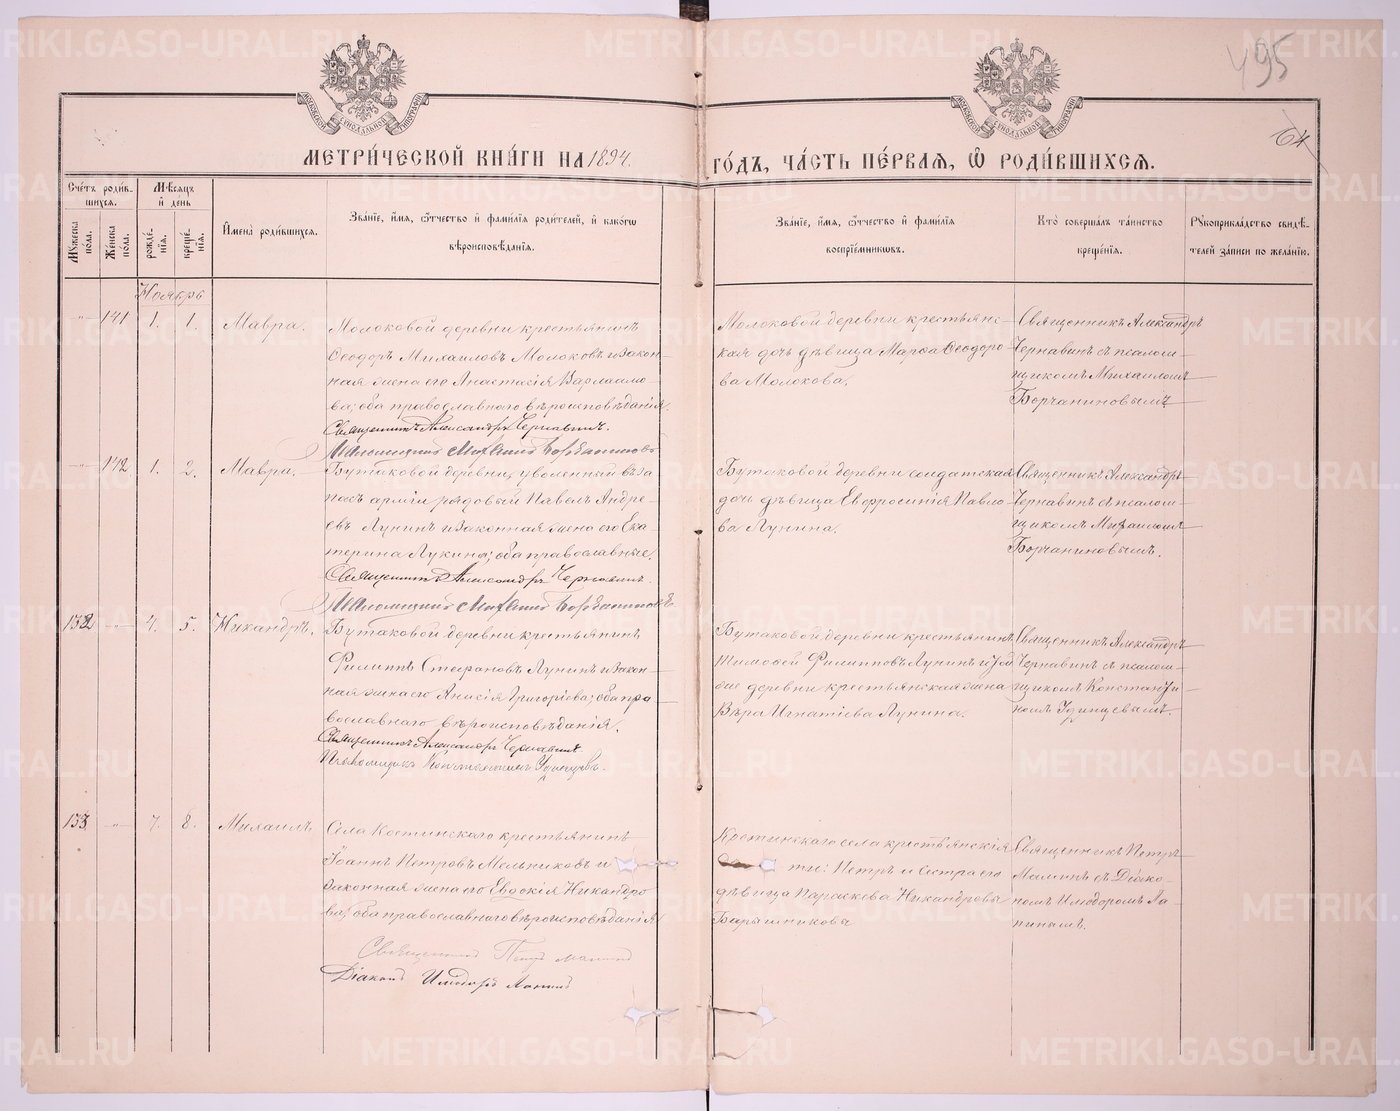 495
64
МОСКОВСКОЙ СѴНОДАЛЬНОЙ ТИПОГРАФІИ
МОСКОВСКОЙ СѴНОДАЛЬНОЙ ТИПОГРАФІИ
МЕТРИ́ЧЕСКОЙ КНИ́ГИ НА 1894.
ГО́ДЪ, ЧА́СТЬ ПЕ́РВАЯ, Ѽ РОДИ́ВШИХСЯ.
Сче́тъ роди́в-
шихся.
Мꙋ́жеска
пола.
Же́нска
по́ла.
Мѣ́сяцъ
и҆ день
рожде́-
нія.
креще́-
нія.
И҆мена̀ роди́вшихся.
Зва́ніе, и҆́мя, ѻ҆́тчество и҆ фами́лія роди́телей, и҆ како́гѡ
вѣроисповѣ́данія.
Зва́ніе, и҆́мя, ѻ҆́тчество и҆ фами́лія
воспріе́мниковъ.
Кто̀ соверша́лъ та́инство
креще́нія.
Рꙋкоприкла́дство свидѣ́-
телей за́писи по жела́нію.
Ноябрь
-"- 141 1. 1. Мавра.
Молоковой деревни крестьянинъ
Ѳеодоръ Михаиловъ Молоковъ и закон-
ная жена его Анастасія Варлаамо-
ва; оба православнаго вѣроисповѣданія.
Священникъ Александръ Чернавинъ.
Псаломщикъ Михаилъ Борчаниновъ
Молоковой деревни крестьянс-
кая дочь дѣвица Марѳа Ѳеодоро-
ва Молокова.
Священникъ Александръ
Чернавинъ съ псалом-
щикомъ Михаиломъ
Борчаниновымъ
-"- 142 1. 2. Мавра.
Бутаковой деревни, уволенный въ за-
пасъ арміи рядовый Павелъ Андре-
евъ Лунинъ и законная жена его Ека-
терина Лукина; оба православные.
Священникъ Александръ Чернавинъ.
Псаломщикъ Михаилъ Борчаниновъ
Бутаковой деревни солдатская
дочь дѣвица Евфросинія Павло-
ва Лунина.
Священникъ Александръ
Чернавинъ съ псалом-
щикомъ Михаиломъ
Борчаниновымъ.
132 -"- 4. 5. Никандръ.
Бутаковой деревни крестьянинъ
Филиппъ Стефановъ Лунинъ и закон-
ная жена его Анисія Григоріева; оба пра-
вославнаго вѣроисповѣданія.
Священникъ Александръ Чернавинъ
Псаломщикъ Константинъ Удинцевъ.
Бутаковой деревни крестьянинъ
Тимовей Филипповъ Лунинъ и той
же деревни крестьянская жена
Вѣра Игнатіева Лунина.
Священникъ Александръ
Чернавинъ съ псалом-
щикомъ Константи-
номъ Удинцевымъ.
133 -"- 7. 8. Михаилъ
Села Костинскаго крестьянинъ
Іоаннъ Петровъ Мельниковъ и
законная жена его Евдокія Никандро-
ва; оба православнаго вѣроисповѣданія
Священникъ Петръ Маминъ
Діаконъ Илiодоръ Лапинъ
Костинскаго села крестьянскія
ти: Петръ и сестра его
дѣвица Параскева Никандровы
Барышниковы
Священникъ Петръ
Маминъ съ Діако-
номъ Иліодоромъ Ла-
пинымъ.